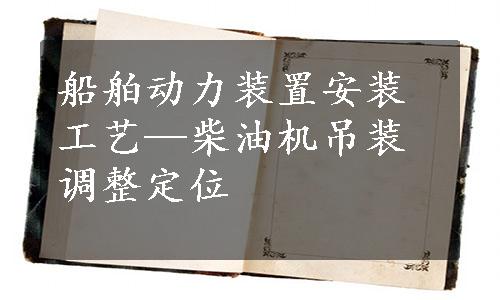 船舶动力装置安装
工艺—柴油机吊装
调整定位